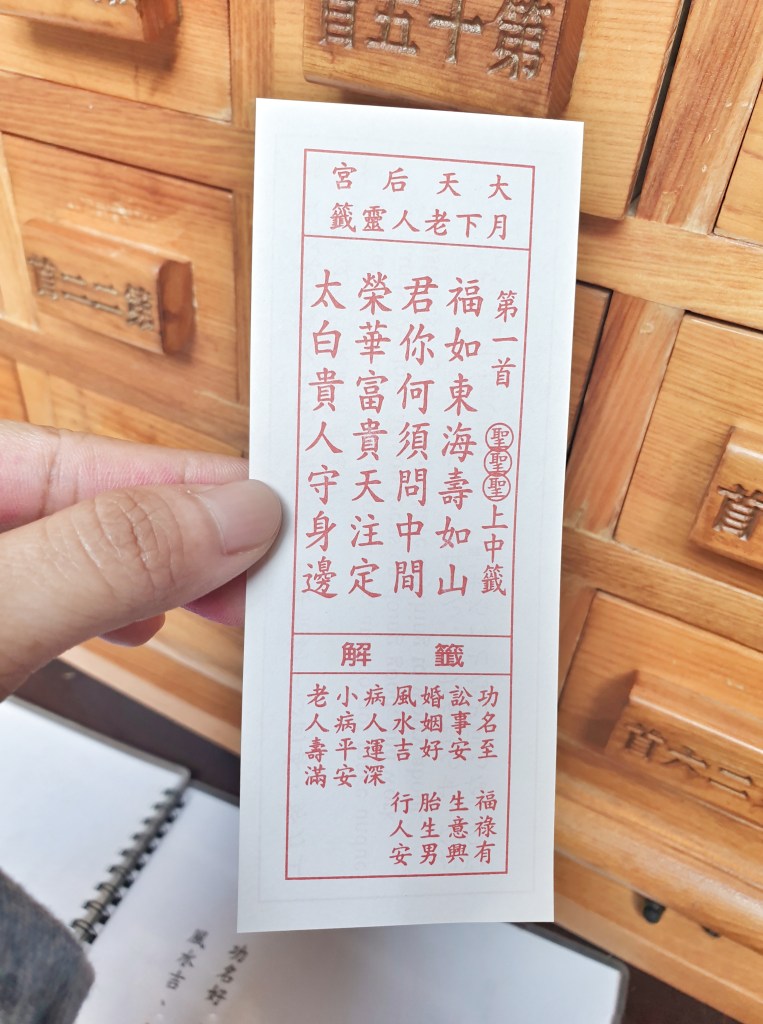 第十五首
大天后宮
月下老人靈籤
第一首 聖聖聖 上中籤
福如東海壽如山
君你何須問中間
榮華富貴天注定
太白貴人守身邊
籤解
功名至 福祿有
訟事安 生意興
婚姻好 胎生男
風水吉 行人安
病人運深
小病平安
老人壽滿
第二二首
首
二六首
功名好
風水吉、